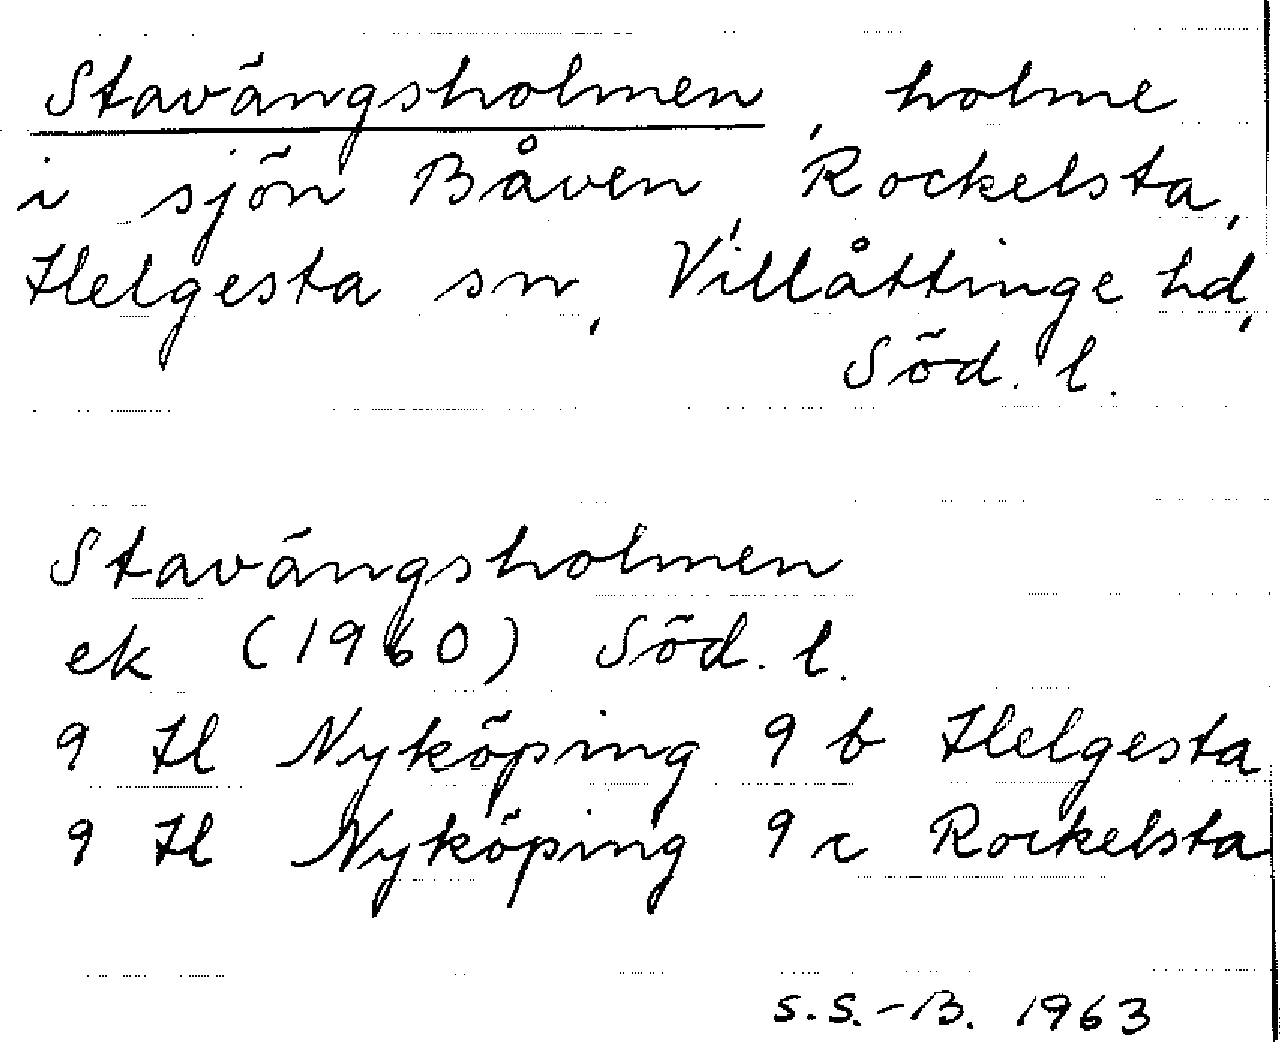 Stavängsholmen, holme
i sjön Båven, Rockelsta,
Helgesta sn, Villåttinge hd,
Söd. l.
Stavängsholmen
ek (1960) Söd. l.
9 H Nyköping 9 b Helgesta
9 H Nyköping 9 c Rockelsta
S.S.-B. 1963